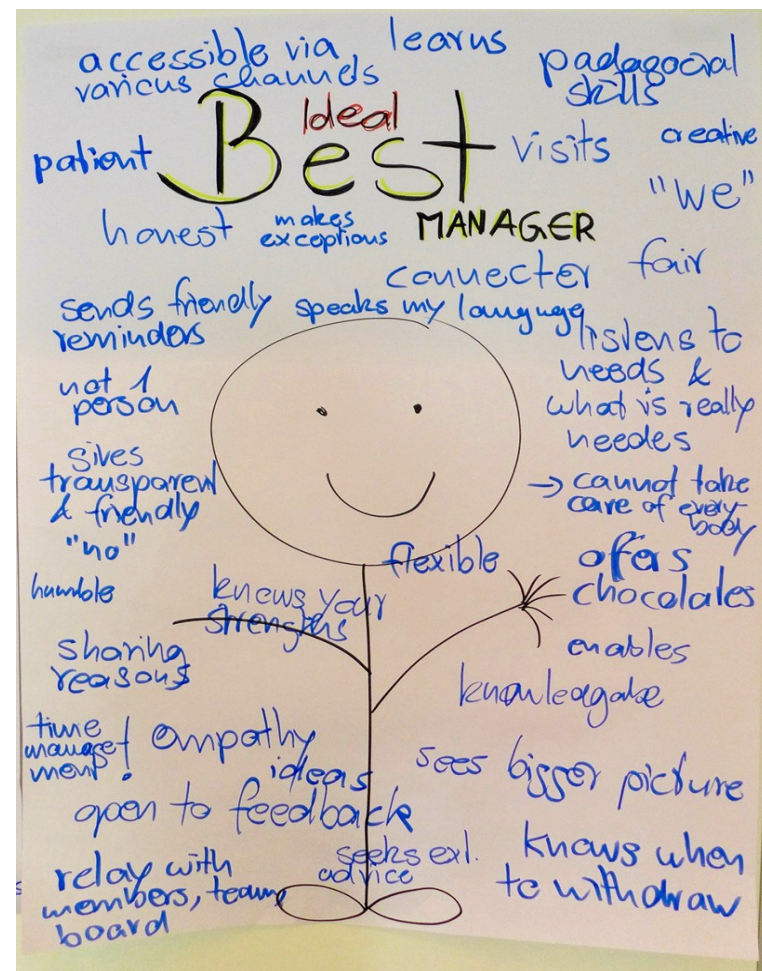 accessible via
various channels
learns
padagocial
skills
Ideal
Best
MANAGER
patient
visits
creative
"we"
honest
makes
exceptions
connecter
fair
sends friendly
reminders
speaks my language
listens to
needs &
what is really
needes
not 1
person
gives
transparent
& friendly
"no"
→ cannot take
care of every
body
flexible
offers
chocolates
humble
knows your
strengths
enables
sharing
reasons
knowleagabe
time
manage
ment!
empathy
ideas
sees bigger picture
open to feedback
seeks exl.
advice
knows when
to withdraw
relay with
members, team,
board